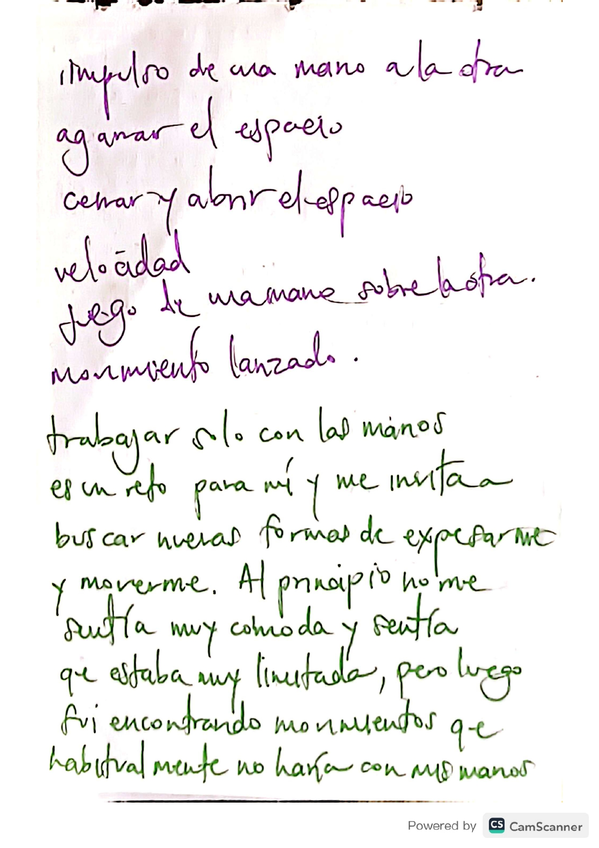 impulso de una mano a la otra
aganar el espacio
cerrar y abrir el espacio
velocidad
juego de una mano sobre la otra.
movimiento lanzado.
trabajar solo con las manos
es un reto para mí y me invita a
buscar nuevas formas de expesarme
y moverme. Al principio no me
sentía muy comoda y sentía
qe estaba muy limitada, pero luego
fui encontrando movimientos qe
habitualmente no haría con mis manos
Powered by CS CamScanner